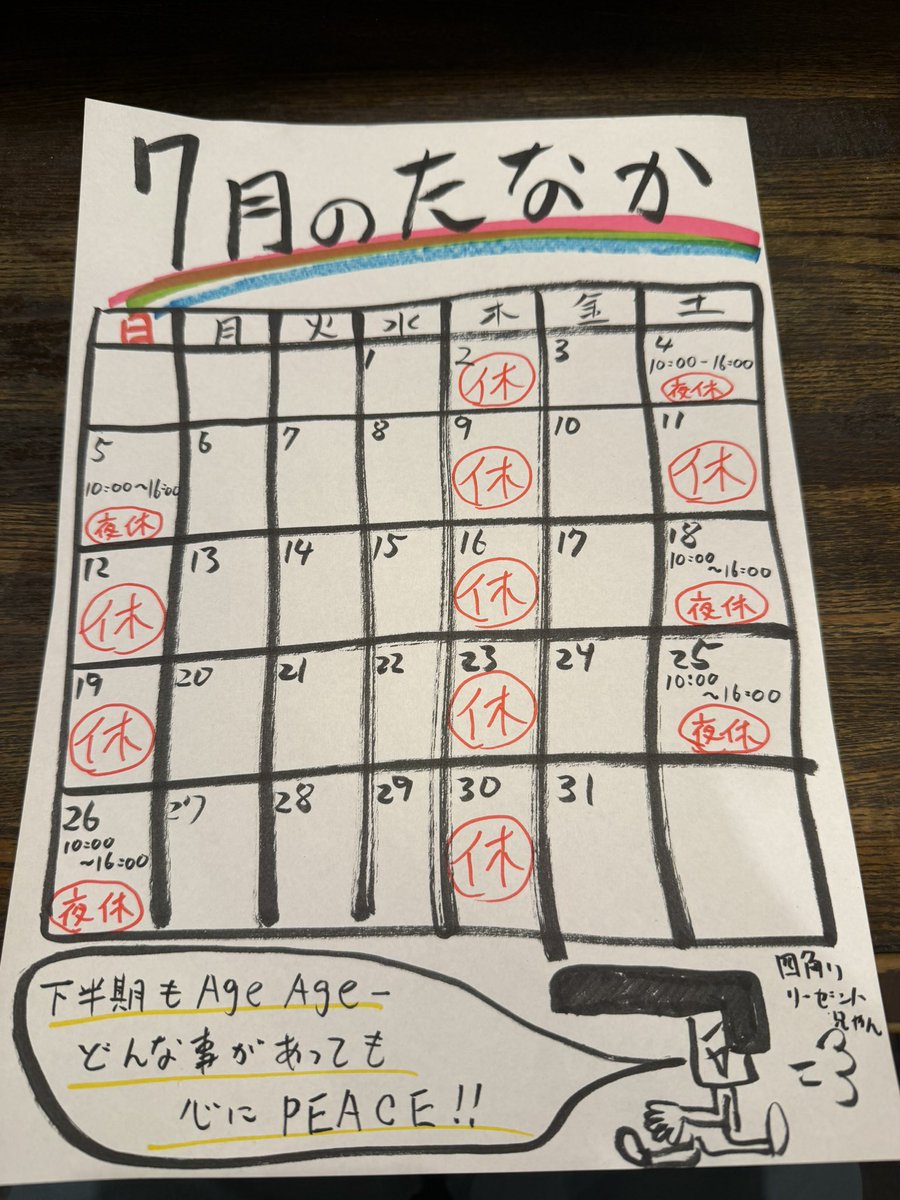 7月のたなか
日 月 火 水 木 金 土
1 2 3 4
休 10:00-16:00
夜休
5 6 7 8 9 10 11
10:00~16:00 休 休
夜休
12 13 14 15 16 17 18
休 休 10:00
~16:00
夜休
19 20 21 22 23 24 25
休 休 10:00
~16:00
夜休
26 27 28 29 30 31
10:00 休
~16:00
夜休
下半期も Age Age-
どんな事があっても
心に PEACE!!
四角い
リーゼント
兄やん